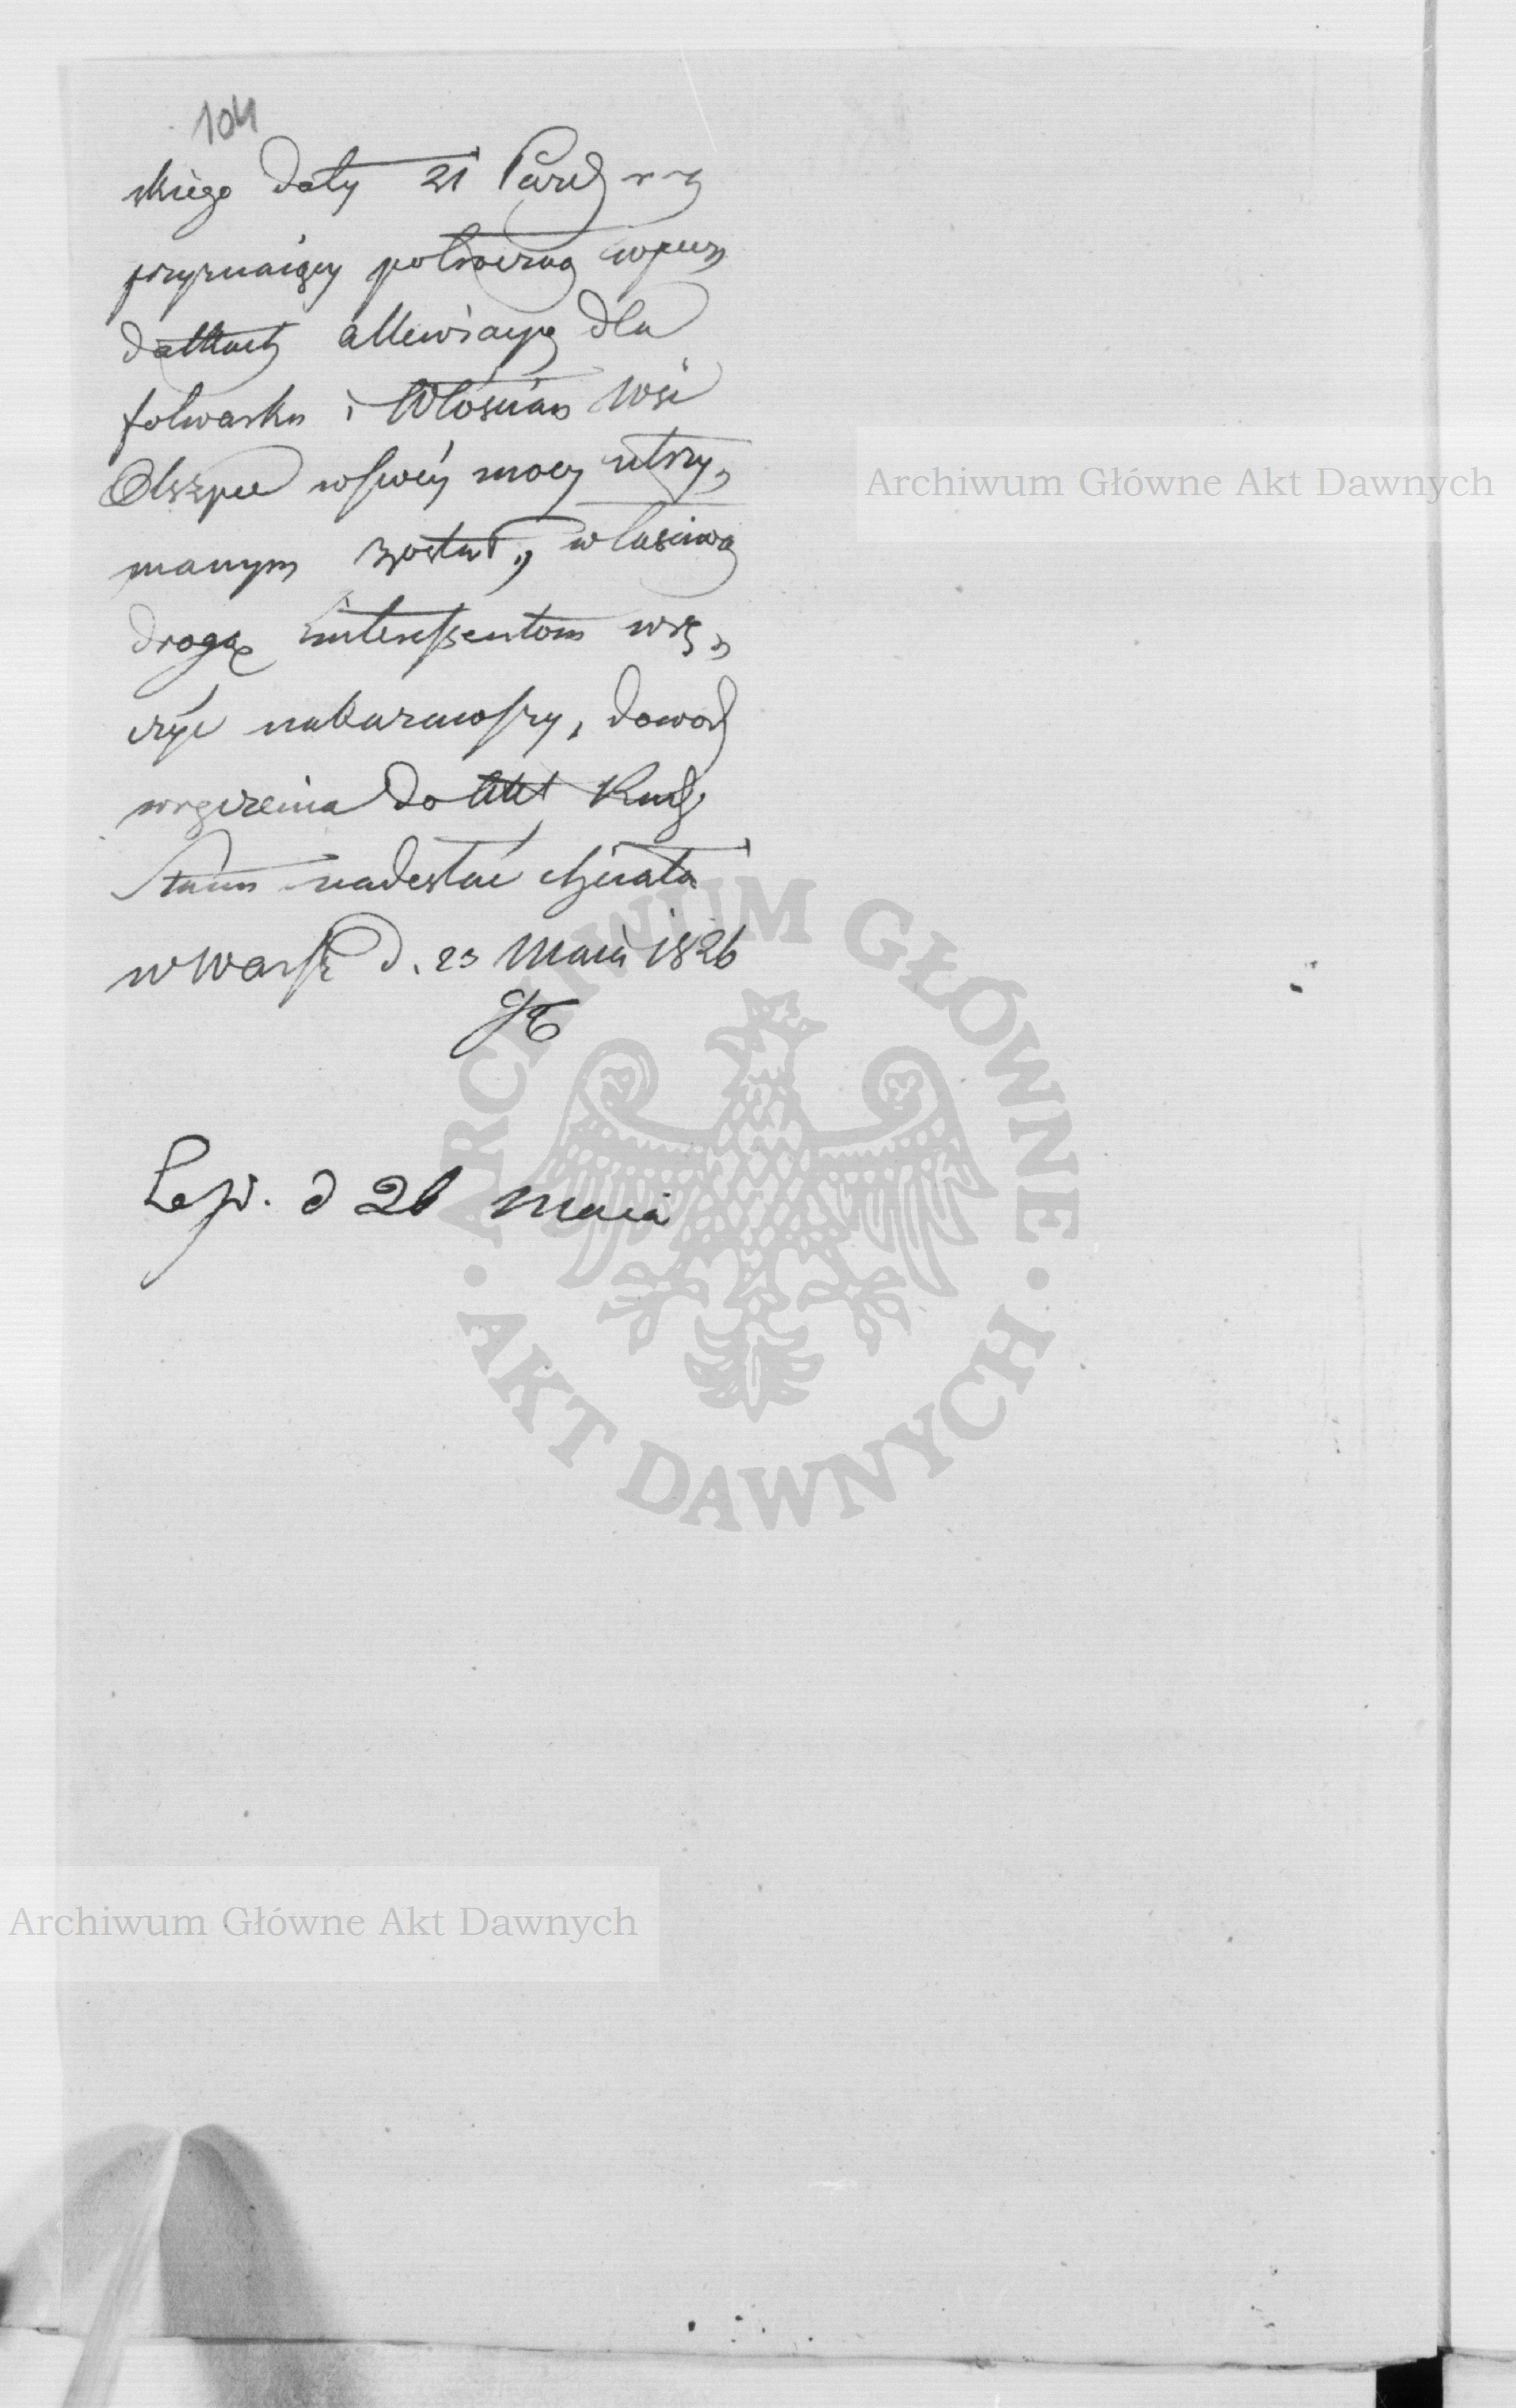 104
skiego daty 21 Pazd. r z
przyznaiący potroczną w pom
datkach allewiacyę dla
folwarku i Włościan Wsi
w swéy mocy utrzy„
manym został, właściwą
drogą Interessentom wrę„
czyć nakazawszy, dowod
wręczenia do Akt Rady
Stanu nadesłać
w Warsz d. 23 Maia 1826
d 26 Maia
Archiwum Główne Akt Dawnych
ARCHIWUM GŁÓWNE · AKT DAWNYCH ·
Archiwum Główne Akt Dawnych